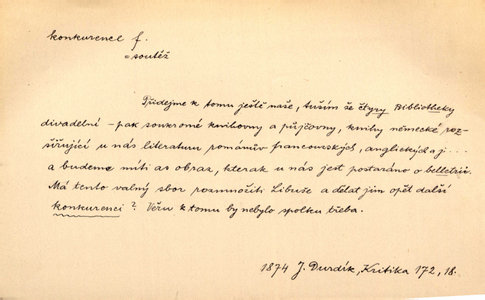 konkurencí f.
= soutěž
Přidejme k tomu ještě naše, tuším že čtyry Bibliotheky
divadelní – pak soukromé knihovny a půjčovny, knihy německé roz-
šiřující u nás literaturu románův francouzských, anglických a j...
a budeme míti as obraz, kterak u nás jest postaráno o belletrii.
Má tento valný sbor rozmnožiti Libuše a dělat jim opět další
konkurenci? Věru k tomu by nebylo spolku třeba.
1874 J. Durdík, Kritika 172, 18.